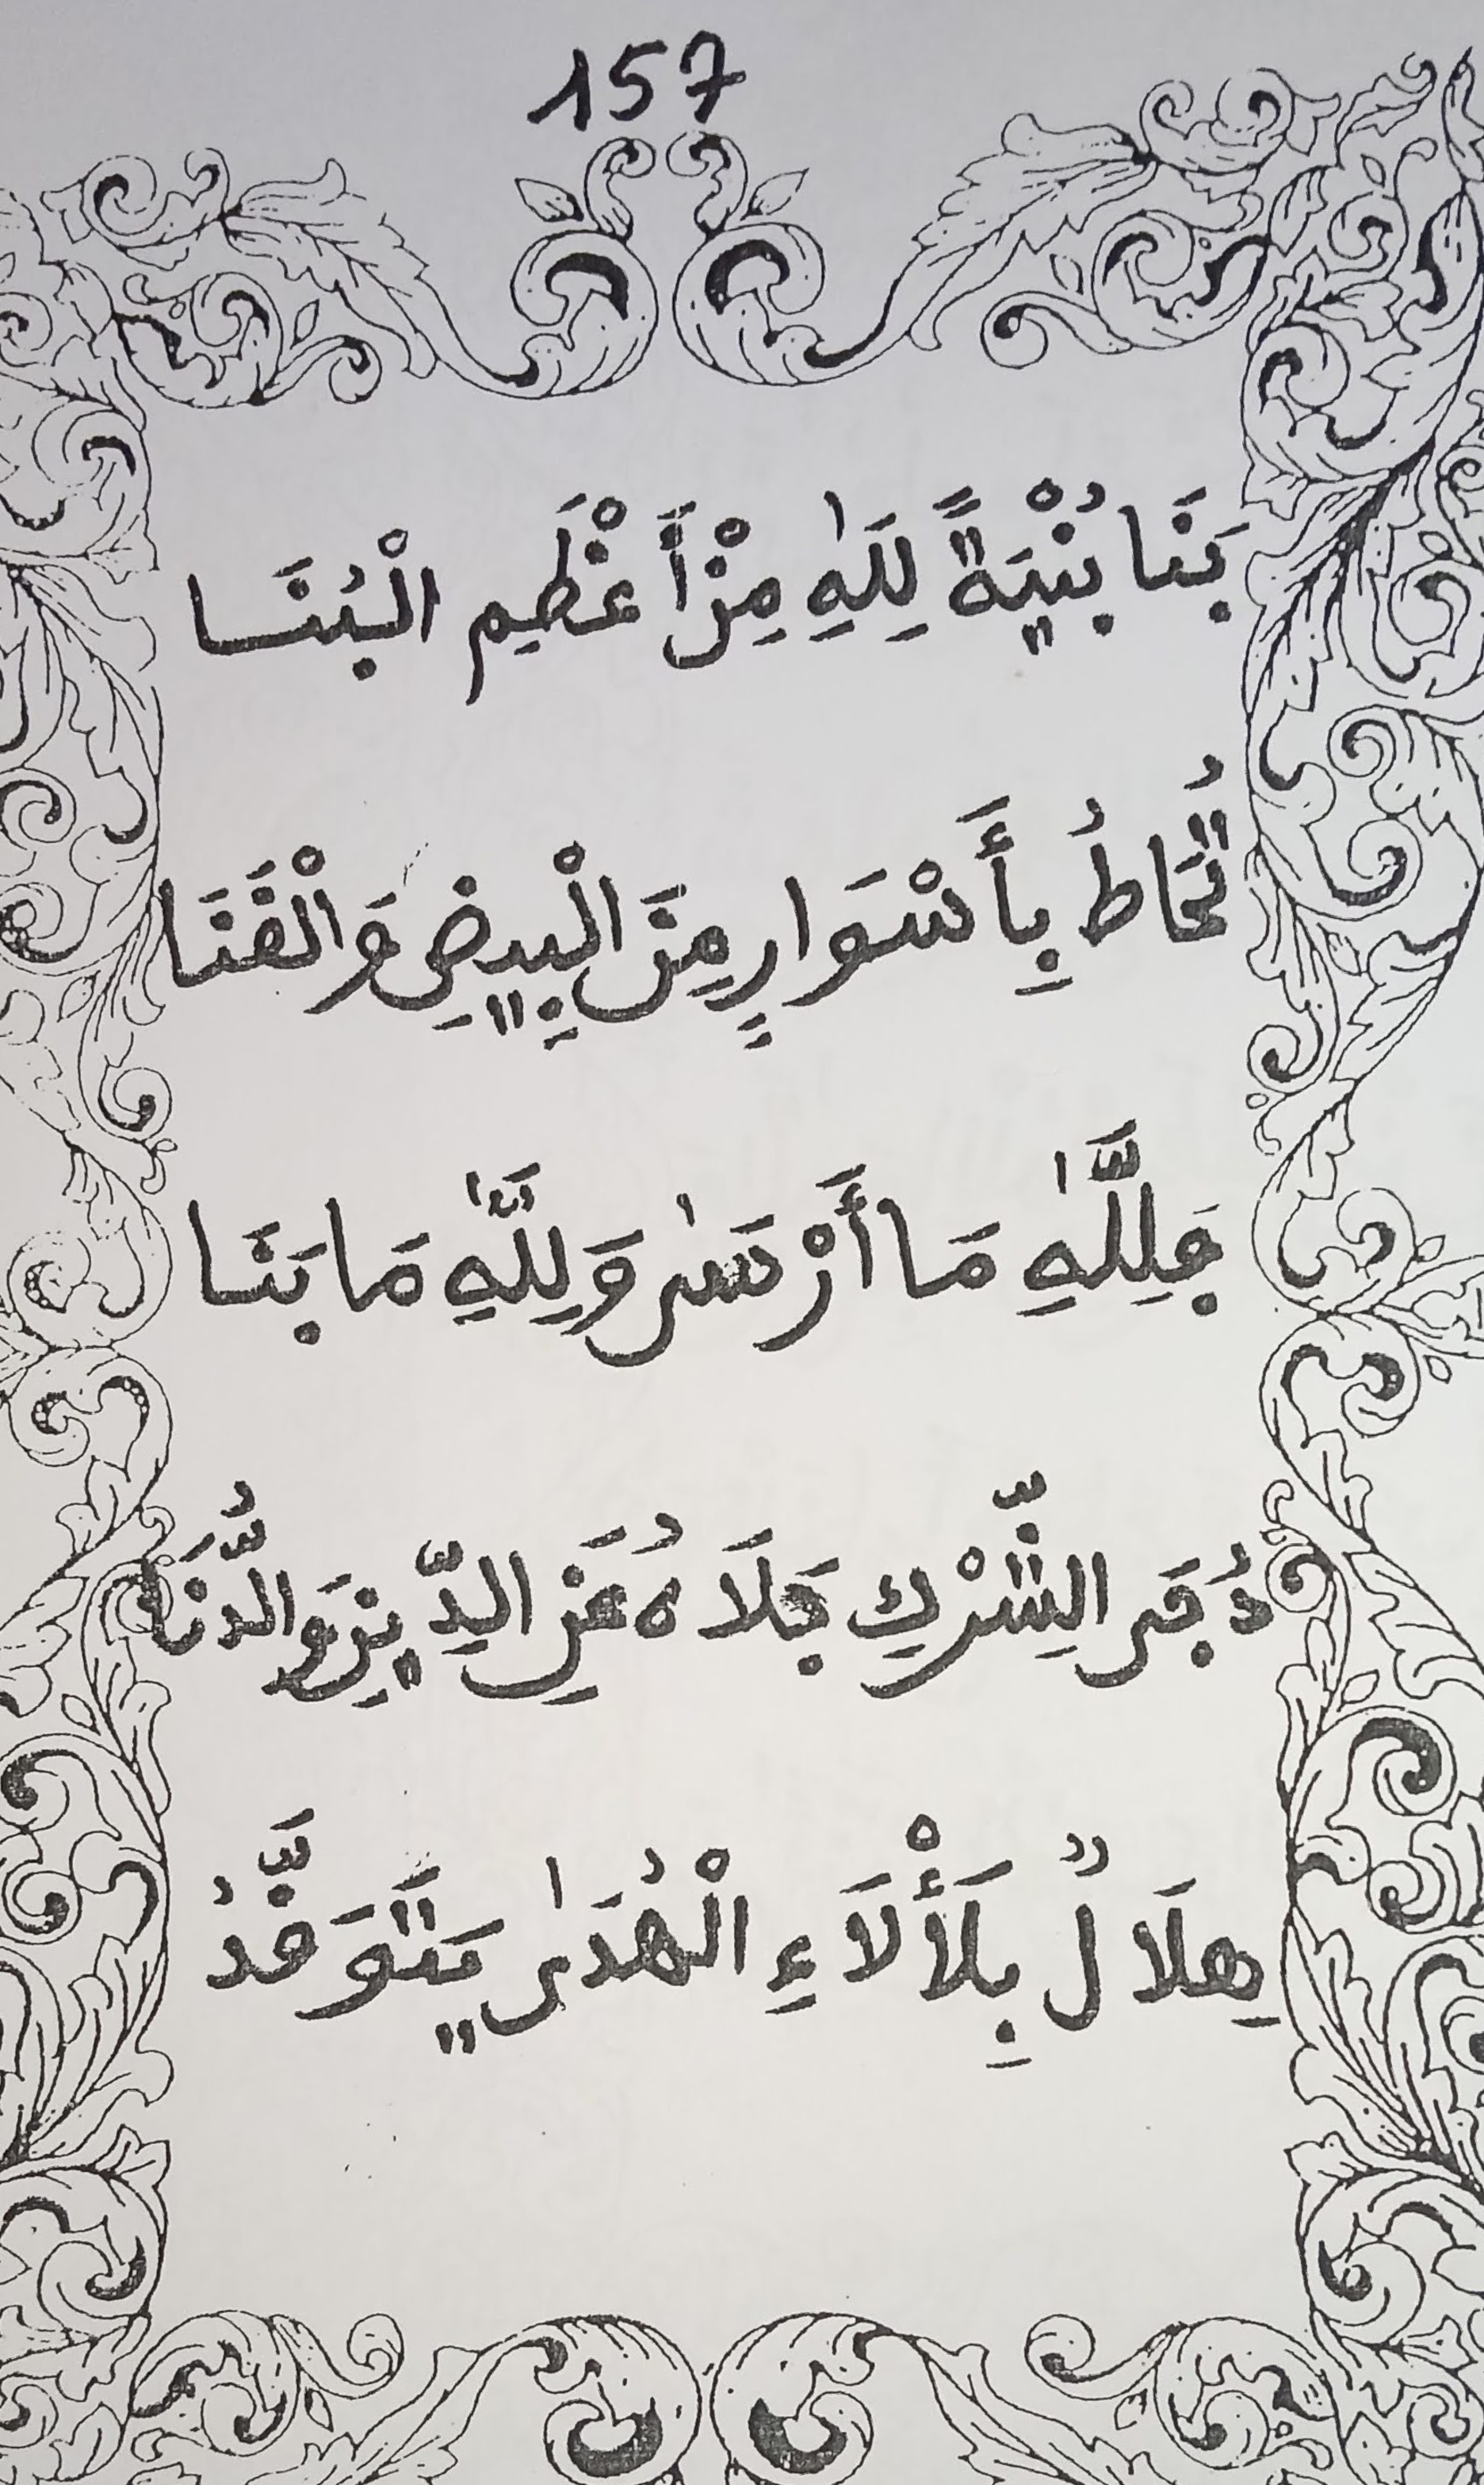 157
بَنَا بُنْيَةً لِلَهِ مِنْ أَعْظَمِ الْبُنَا
تُحَاطُ بِأَسْوَارٍ مِنَ الْبِيضِ وَالْقَنَا
فَلِلَّهِ مَا أَرْسَى وَلِلَّهِ مَا بَنَا
دُجَى الشِّرْكِ جَلَاهُ عَنِ الدِّينِ وَالدُّنَا
هِلَالٌ بِلَأْلَاءِ الْهُدَى يَتَوَقَّدُ